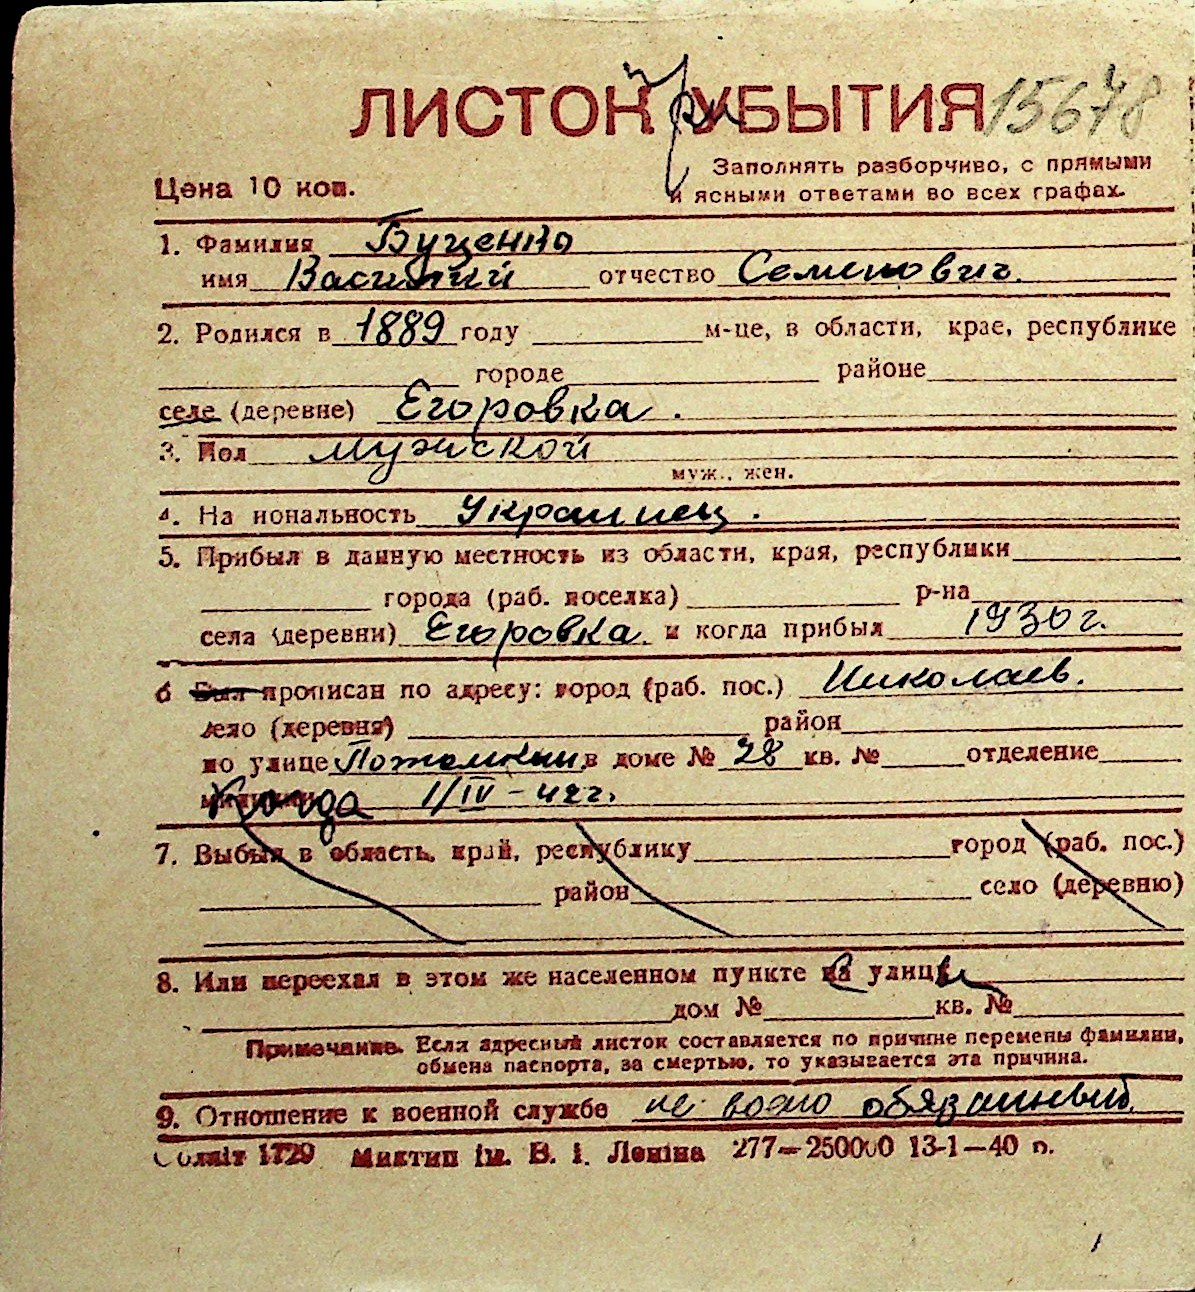 ЛИСТОК прибытия 15678
Заполнять разборчиво, с прямыми
Цена 10 коп.
и ясными ответами во всех графах.
1. Фамилия Буценко
имя Василий отчество Семенович.
2. Родился в 1889 году м-це, в области, крае, республике
городе районе
селе (деревне) Егоровка.
3. Пол мужской
муж., жен.
4. На иональность Украинец.
5. Прибыл в данную местность из области, края, республики
города (раб. поселка) р-на
села (деревни) Егоровка и когда прибыл 1930 г.
6 Был прописан по адресу: город (раб. пос.) Николаев.
село (деревня) район
по улице Потемкин. в доме № 28 кв. № отделение
Когда 1/IV-42 г.
7. Выбыл в область, край, республику город (раб. пос.)
район село (деревню)
8. Или переехал в этом же населенном пункте на улицу
дом № кв. №
Примечание. Если адресный листок составляется по причине перемены фамилии,
обмена паспорта, за смертью, то указывается эта причина.
9. Отношение к военной службе не воено обязанный.
Облліт 1729 Миктип ім. В. І. Леніна 277—250000 13-1—40 р.